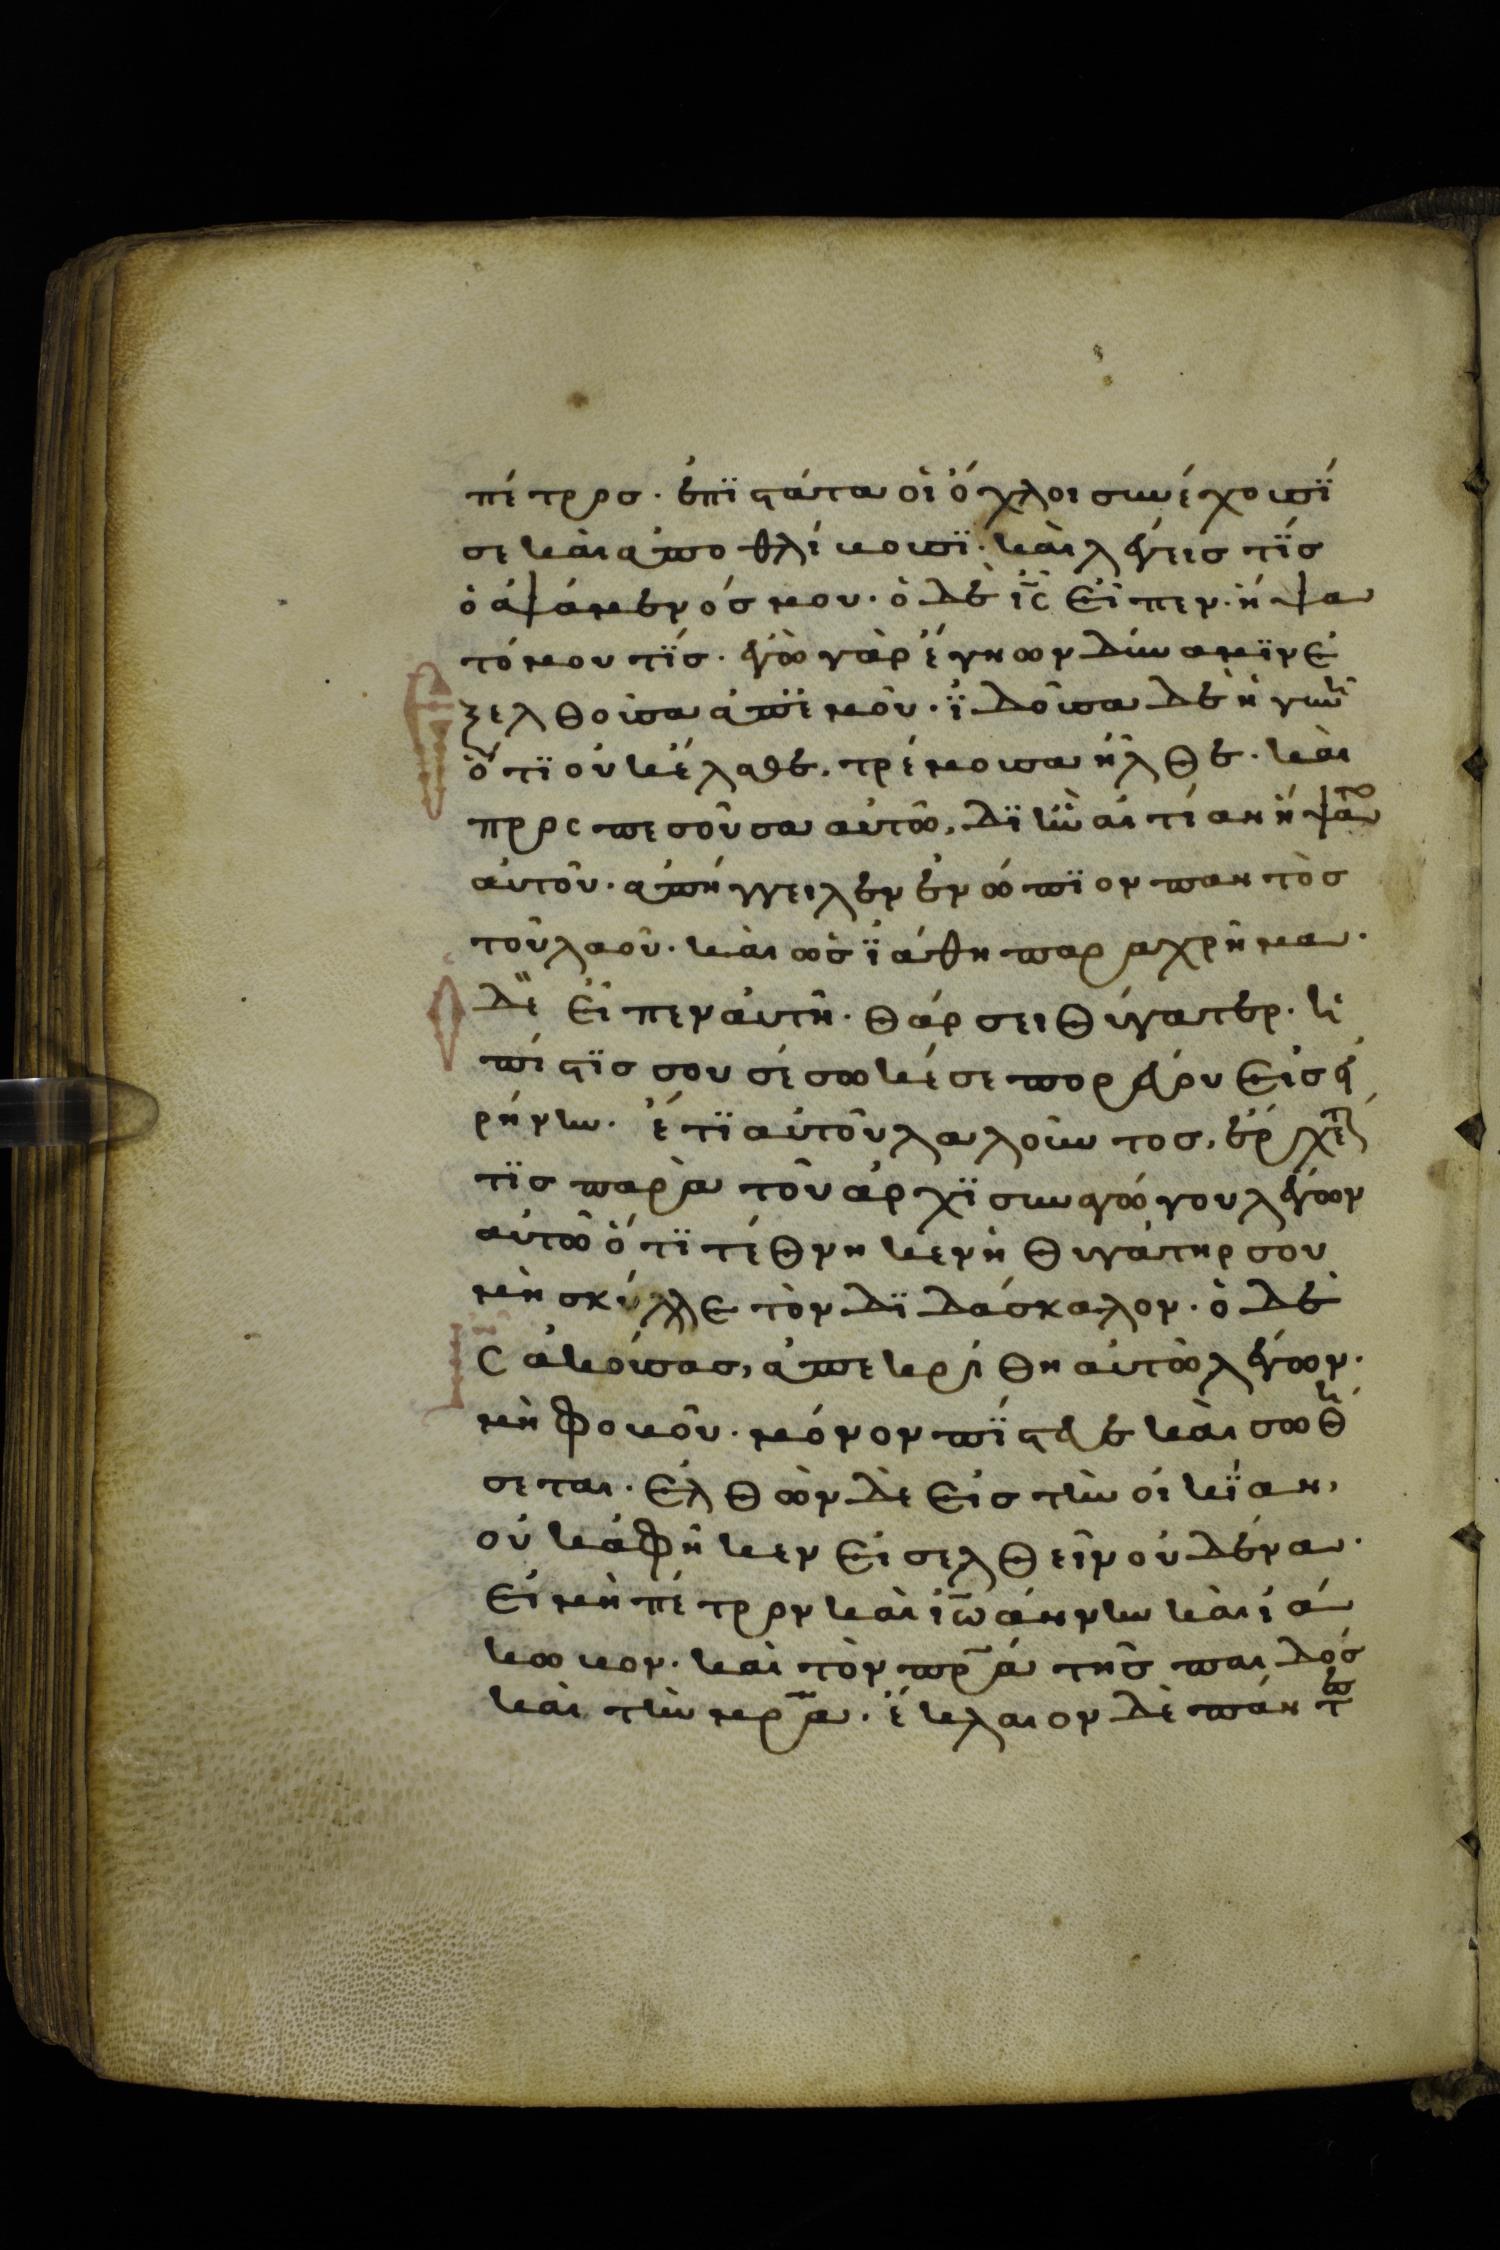 πέτρος· ἐπϊστάτα οἱ ὄχλοι συνέχουσϊ
σε καὶ ἀποθλίβουσϊ· καὶ λέγεις τΐς
ὁ ἁψάμενός μου· ὁ δὲ ι̅ς̅ εἶπεν· ἥψα
τό μου τΐς· ἐγὼ γὰρ ἔγνων δύναμϊν ἐ
ξελθοῦσα ἀπ' ἐμοῦ· ϊδοῦσα δὲ ἡ γυνὴ
ὅτϊ οὐκ ἔλαθε, τρέμουσα ἦλθε· καὶ
προςπεσοῦσα αὐτῶ, δϊ' ἣν αἰτίαν ἥψατο
αὐτοῦ· ἀπήγγειλεν ἐνώπϊον παντὸς
τοῦ λαοῦ· καὶ ὡς ϊάθη παραχρῆμα·
Ὁ δὲ εἶπεν αὐτῆ· θάρσει θύγατερ· ἡ
πίστϊς σου σέσωκέ σε πορεύου εἰς εἰ
ρήνην· ἔτϊ αὐτοῦ λαλοῦντος, ἔρχεταί
τϊς παρὰ τοῦ ἀρχϊσυναγώγου λέγων
αὐτῶ ὅτϊ τέθνηκεν ἡ θυγάτηρ σου
μὴ σκύλλε τὸν δϊδάσκαλον· ὁ δὲ
ι̅ς̅ ἀκούσας, ἀπεκρίθη αὐτῶ λέγων·
μὴ φοβοῦ· μόνον πΐστευε καὶ σωθή
σεται· ἐλθὼν δὲ εἰς τὴν οἰκΐαν,
οὐκ ἀφῆκεν εἰσελθεῖν οὐδένα·
εἰ μὴ πέτρον καὶ ἰω̅άννην καὶ ἰά
κωβον· καὶ τὸν πρ̅α τῆς παιδός
καὶ τὴν μρ̅α· ἔκλαιον δὲ πάντες